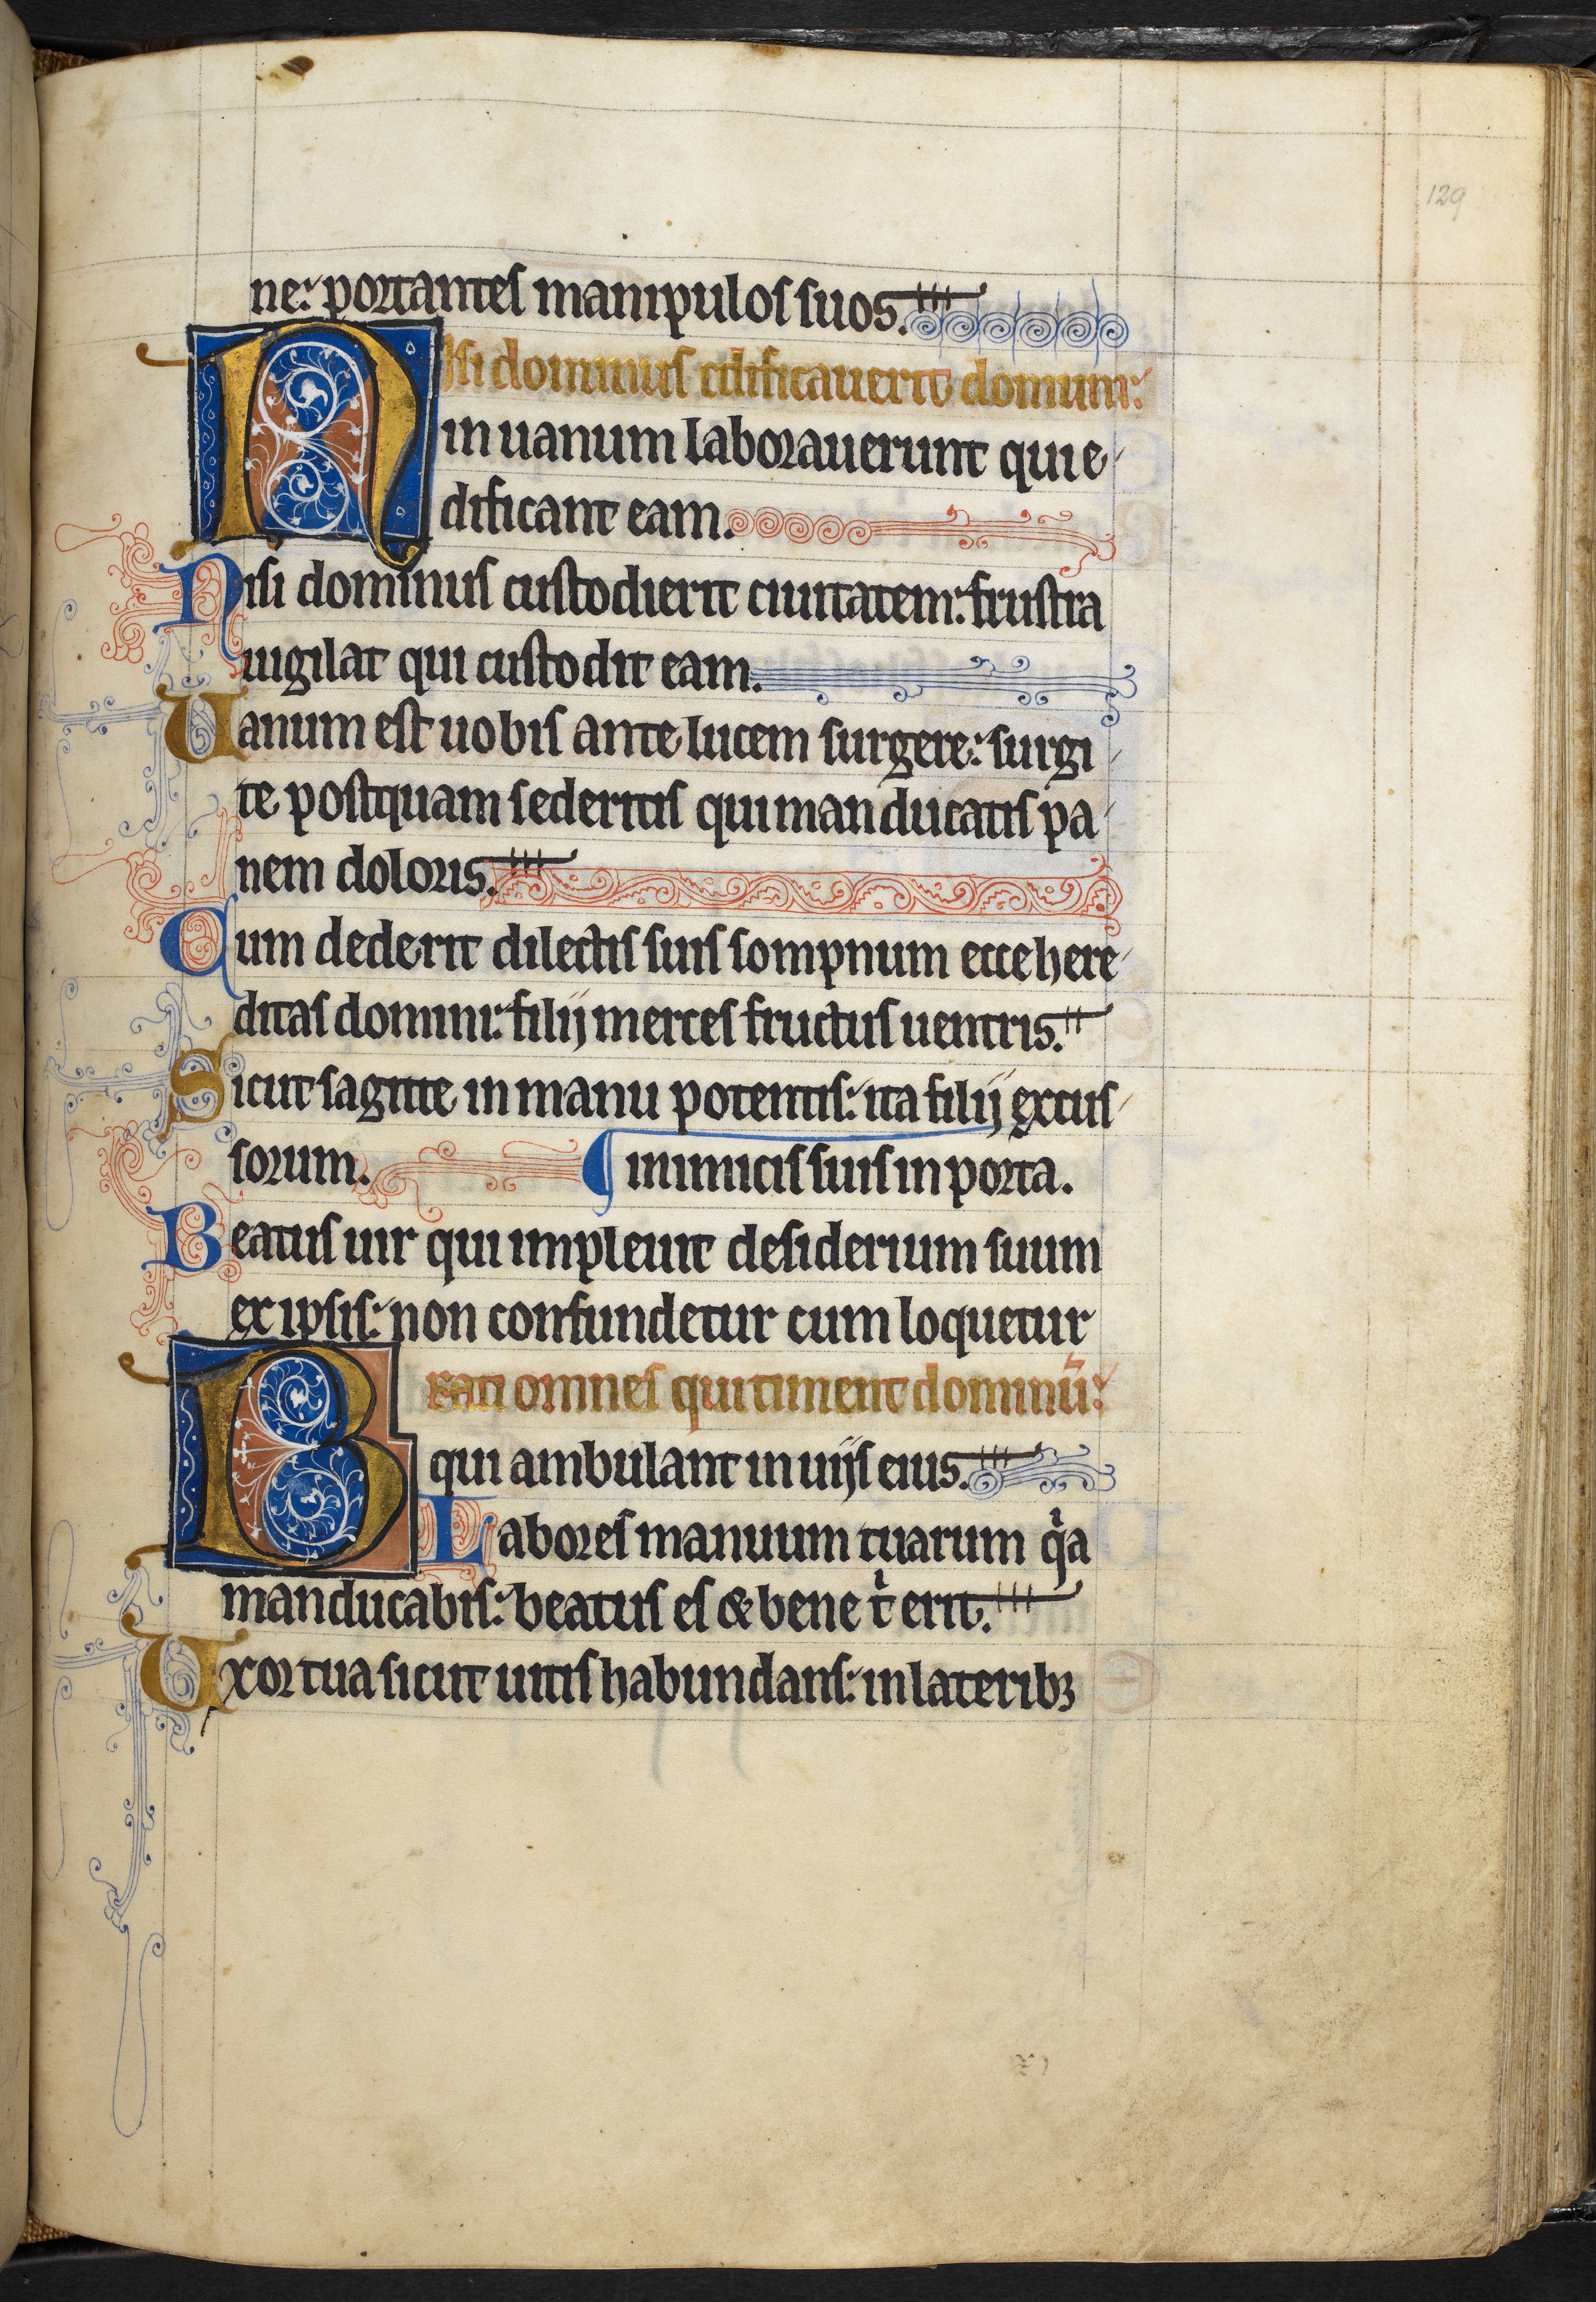 129
ne: portantes manipulos suos.
Nisi dominus edificauerit domum:
in uanum laborauerunt qui e
dificant eam.
Nisi dominus custodierit ciuitatem: frustra
uigilat qui custodit eam.
Uanum est uobis ante lucem surgere: surgi
te postquam sederitis qui manducatis pa
nem doloris.
Cum dederit dilectis suis sompnum ecce here
ditas domini: filij merces fructus uentris.
Sicut sagitte in manu potentis: ita filij excus
sorum. ¶ inimicis suis in porta.
Beatus uir qui impleuit desiderium suum
ex ipsis: non confundetur cum loquetur
Beati omnes qui timent dominū:
qui ambulant in uijs eius.
Labores manuum tuarum qͥa
manducabis: beatus es & bene tͥ erit.
Uxor tua sicut uitis habundans: in lateribꝫ